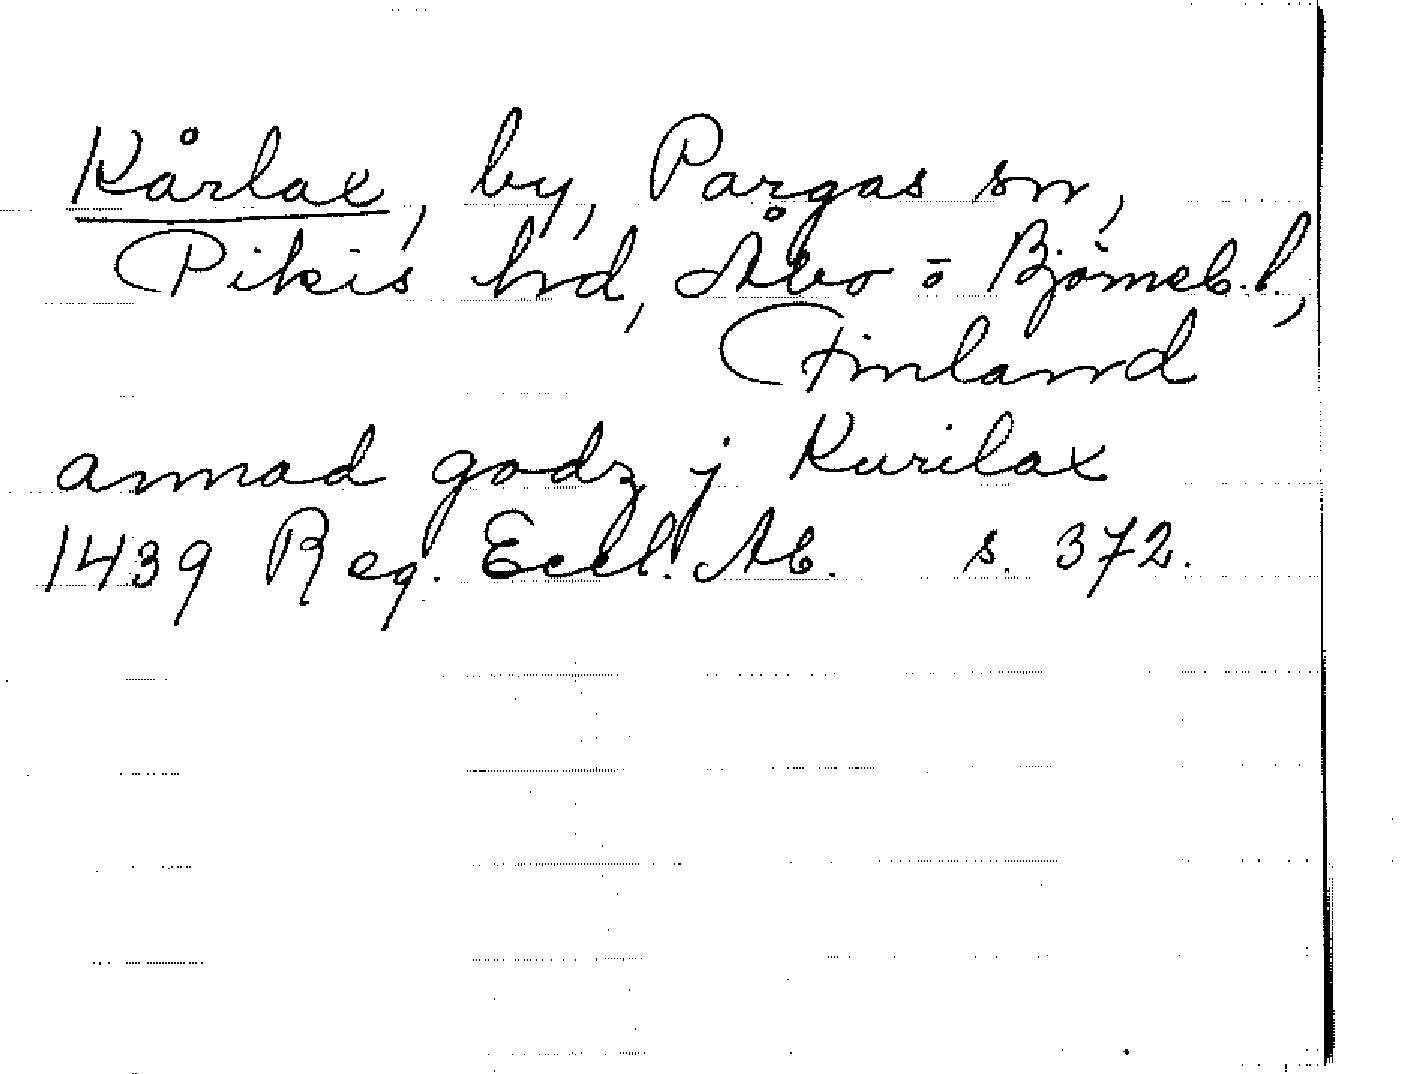 Kårlax, by, Pargas sn,
Pikis hrd, Åbo o Björneb. l.,
Finland
annad godz j Kurilax
1439 Reg. Eccl. Ab. s. 372.